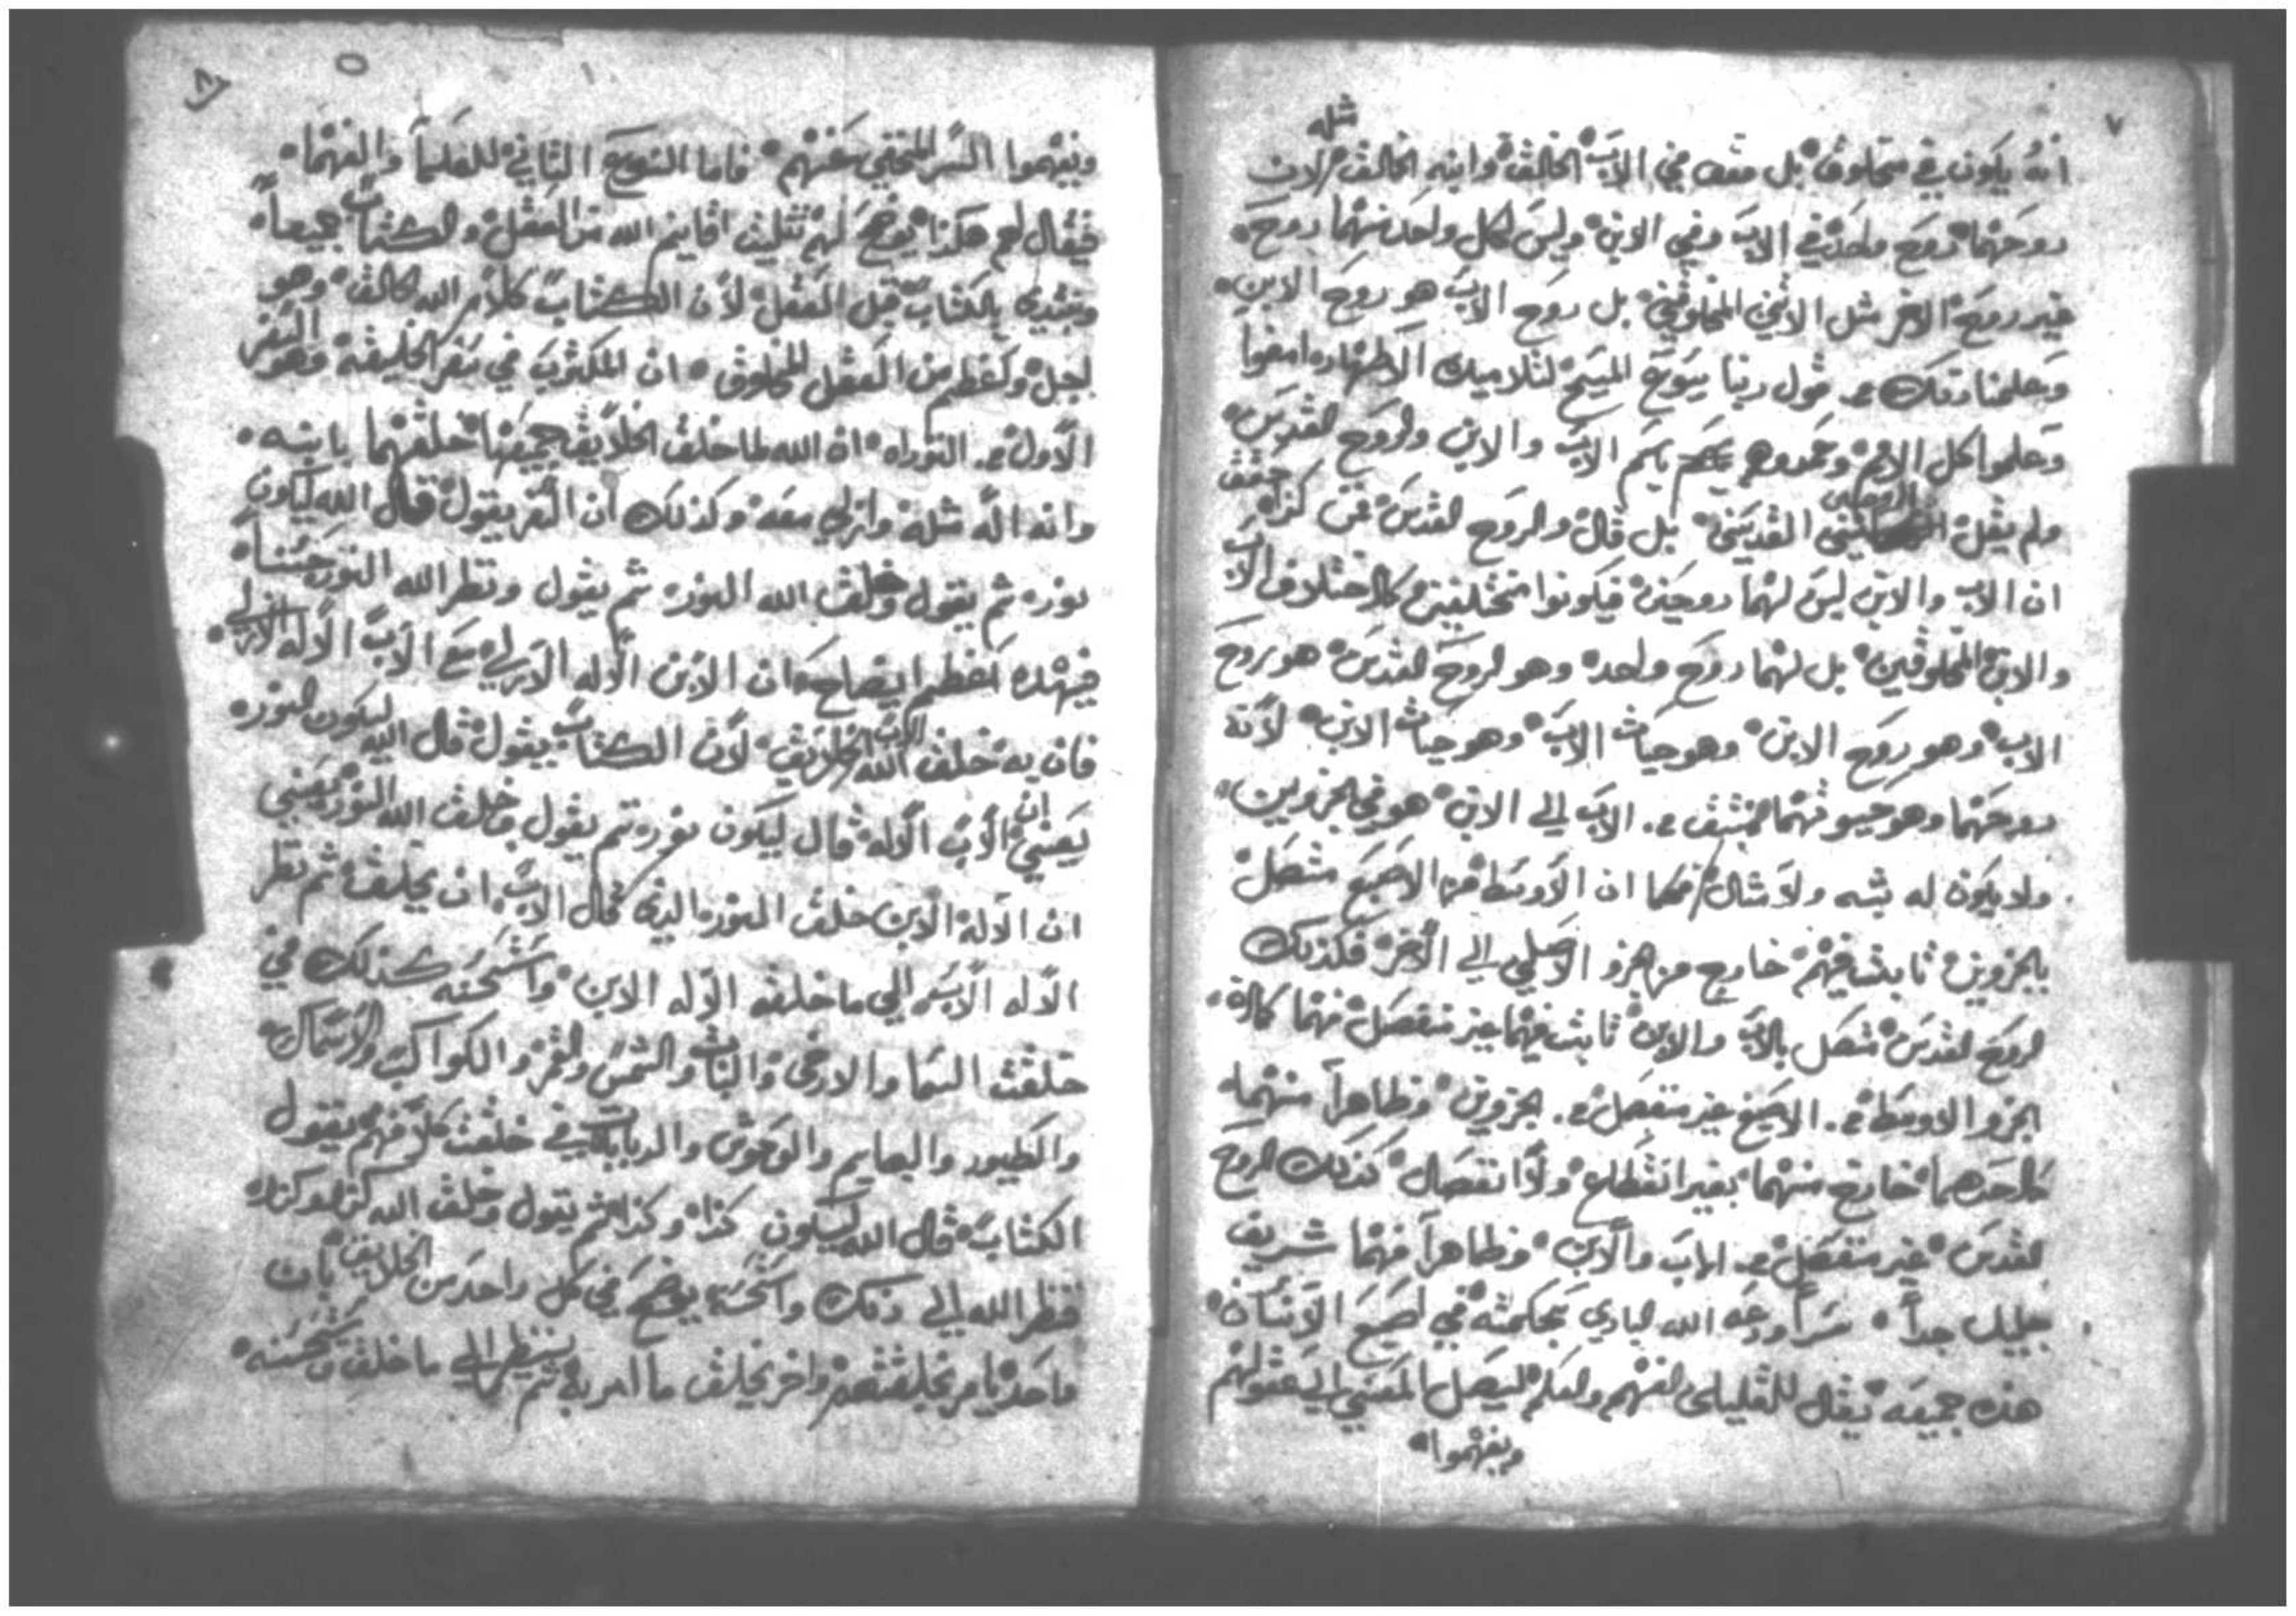 ٧
مثله
انه يكون في مخلوق بل فقط في الاب الخالق وابنه الخالق لان
روحهما روح واحد في الاب وفي الابن وليس لكل واحد منهما روح
غير روح الاخر مثل الاثنين المخلوقين بل روح الاب هو روح الابن
وعلمنا ذلك من قول ربنا يسوع المسيح لتلاميذه الاطهار امضوا
وعلموا كل الامم وعمدوهم باسم الاب والابن والروح القدس
ولم يقل الروحين القديسين بل قال والروح القدس فمن كذا حقق
ان الاب والابن ليس لهما روحين فيكونوا مختلفين كاختلاف الاب
والابن المخلوقين بل لهما روح واحد وهو الروح القدس هو روح
الاب وهو روح الابن وهو حيات الاب وهو حيات الابن لانه
روحهما وهو حيوتهما منبثق من الاب الي الابن هو في الجزوين
ولا يكون له شبه ولا مثال فكما ان الاوسط من الاصبع متصل
بالجزوين ثابت فيهم خارج من الجزو الاصلي الي الاخر فكذلك
الروح القدس متصل بالاب والابن ثابت فيهما غير منفصل منهما كما
الجزو الاوسط من الاصبع غير منفصل من الجزوين وظاهرا منهما
كاحدهما خارج منهما بغير انقطاع ولا انفصال كذلك الروح
القدس غير منفصل من الاب والابن وظاهرا منهما شريف
جليل جدا سرا اودعه الله الباري بحكمته في اصبع الانسان
هذه جميعه يقال للقليلي الفهم والعلم ليصل المعني الي عقولهم
ويفهموا
٨
ويفهموا السر المخفي عنهم فاما النوع الثاني للعلما والفهما
فيقال لهم هكذا يوضح لهم تثليث اقانيم الله من العقل والكتاب جميعا
ونبتدي بالكتاب قبل العقل لان الكتاب كلام الله الخالق وهو
اجل واعظم من العقل المخلوق ان المكتوب في سفر الخليقة وهو السفر
الاول من التوراه ان الله لما خلق الخلايق جميعها خلقهما بابنه
وانه اله مثله وازلي معه وكذلك ان السفر يقول قال الله ليكون
نور ثم يقول وخلق الله النور ثم يقول ونظر الله النور حسنا
فبهذه اعظم ايضاح ان الابن الاله الازلي مع الاب الاله الازلي
فان به خلق الله الاب الخلايق لان الكتاب يقول قال الله ليكون النور
يعني ان الاب الاله قال ليكون نور ثم يقول وخلق الله النور يعني
ان الاله الابن خلق النور الذي قال الاب ان يخلق ثم نظر
الاله الاب الي ما خلقه الاله الابن واستحسنه كذلك في
خلقت السما والارض والنبات والشمس والقمر والكواكب والاسماك
والطيور والبهايم والوحوش والدبابات في خلقت كلا منهم يقول
الكتاب قال الله ليكون كذا وكذا ثم يقول وخلق الله كذا وكذا
فنظر الله الي ذلك واستحسنه يوضح في كل واحد من الخلايق بان
واحد يامر بخلقتهم واخر يخلق ما امر به ثم ينظر الي ما خلق يستحسنه